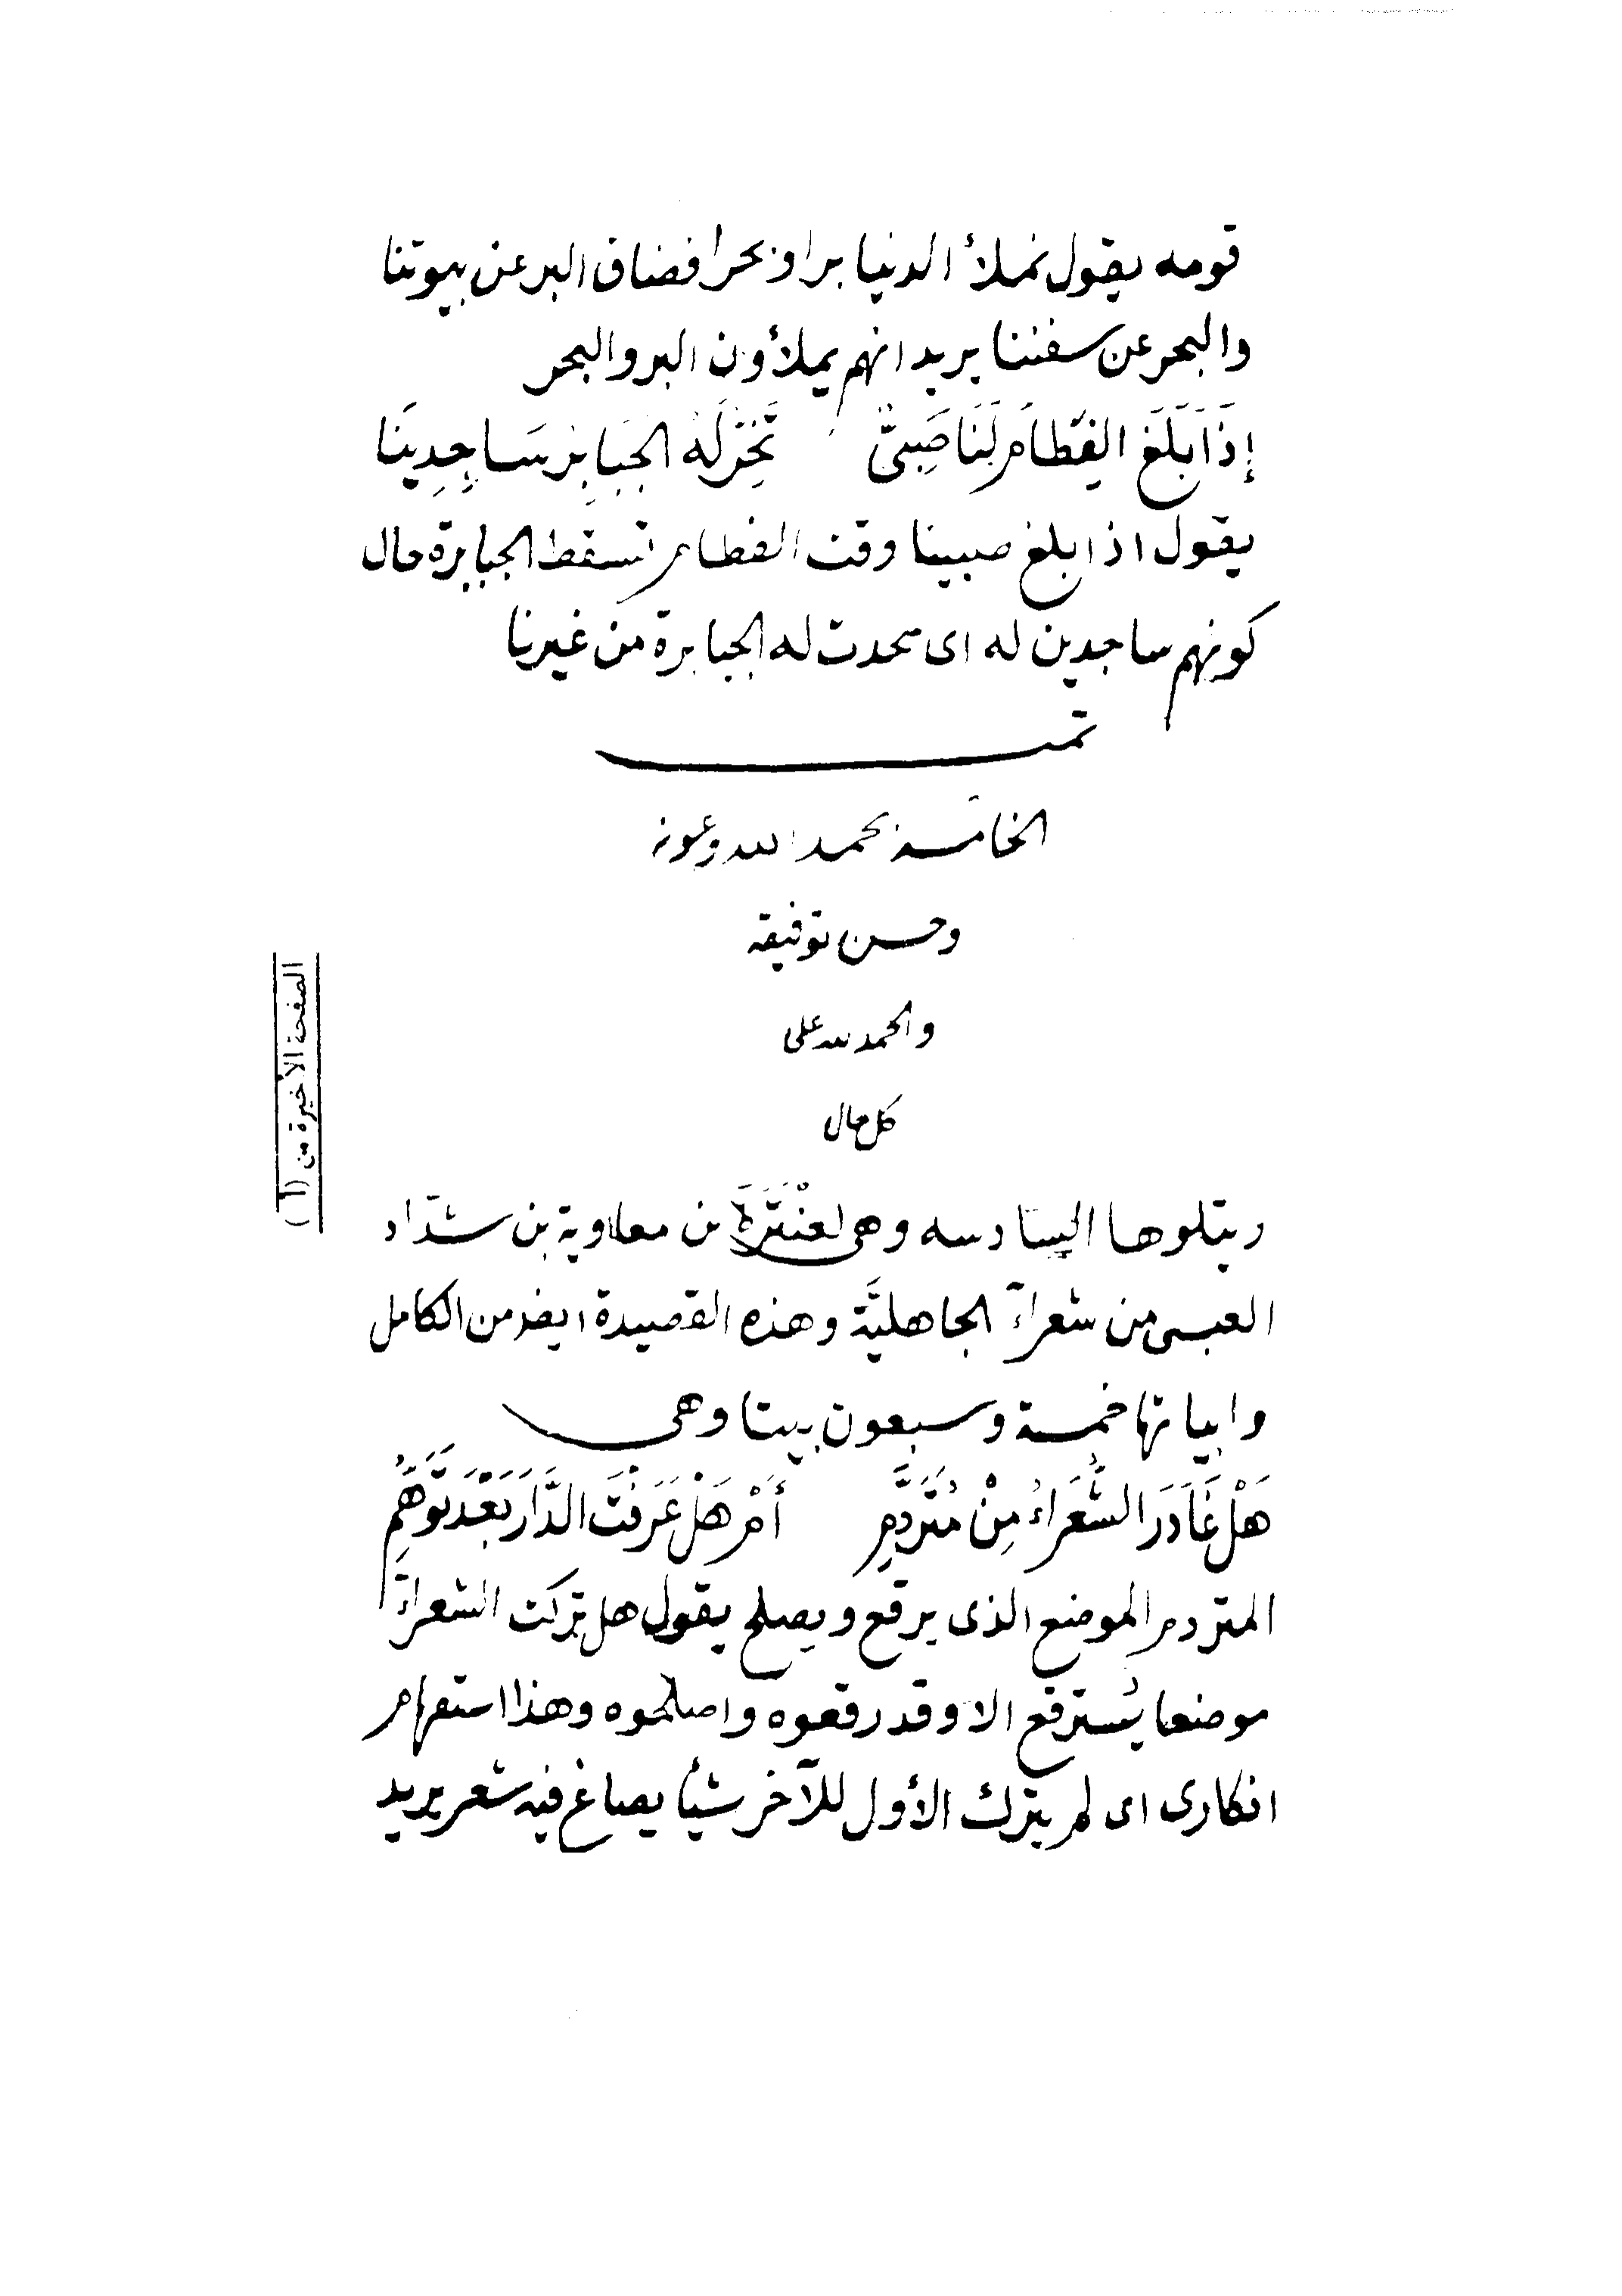 قومه يقول نملأ الدنيا برا وبحرا فضاق البر عن بيوتنا
والبحر عن سفننا يريد انهم يملأون البر والبحر
إِذَا بَلَغَ الفِطَامَ لَنَا صَبِىٌّ تَخِرُّ لَهُ الجَبَابِرُ سَاجِدِينَا
يقول اذا بلغ صبينا وقت الفطام تسقط الجبابرة حال
كونهم ساجدين له اى سجدت له الجبابرة من غيرنا
تمت
الخامسة بحمد الله وعونه
وحسن توفيقه
والحمد لله على
كل حال
ويتلوها السادسه وهى لعَنْتَرَةَ بن معاوية بن شدّاد
العبسى من شعرآء الجاهليَّة وهذه القصيدة ايضا من الكامل
وابياتها خمسة وسبعون بيتا وهى
هَلْ غَادَرَ الشُّعَرَاءُ مِنْ مُتَرَدَّمِ أَمْ هَلْ عَرَفْتَ الدَّارَ بَعْدَ تَوَهُّمِ
المتردم الموضع الذى يرقع ويصلح يقول هل تركت الشعرآء
موضعا يُسترقع الا وقد رقعوه واصلحوه وهذا استفهام
انكارى اى لم يترك الأول للآخر شيأ يصاغ فيه شعر يريد
الصفحة الأخيرة من (أ)